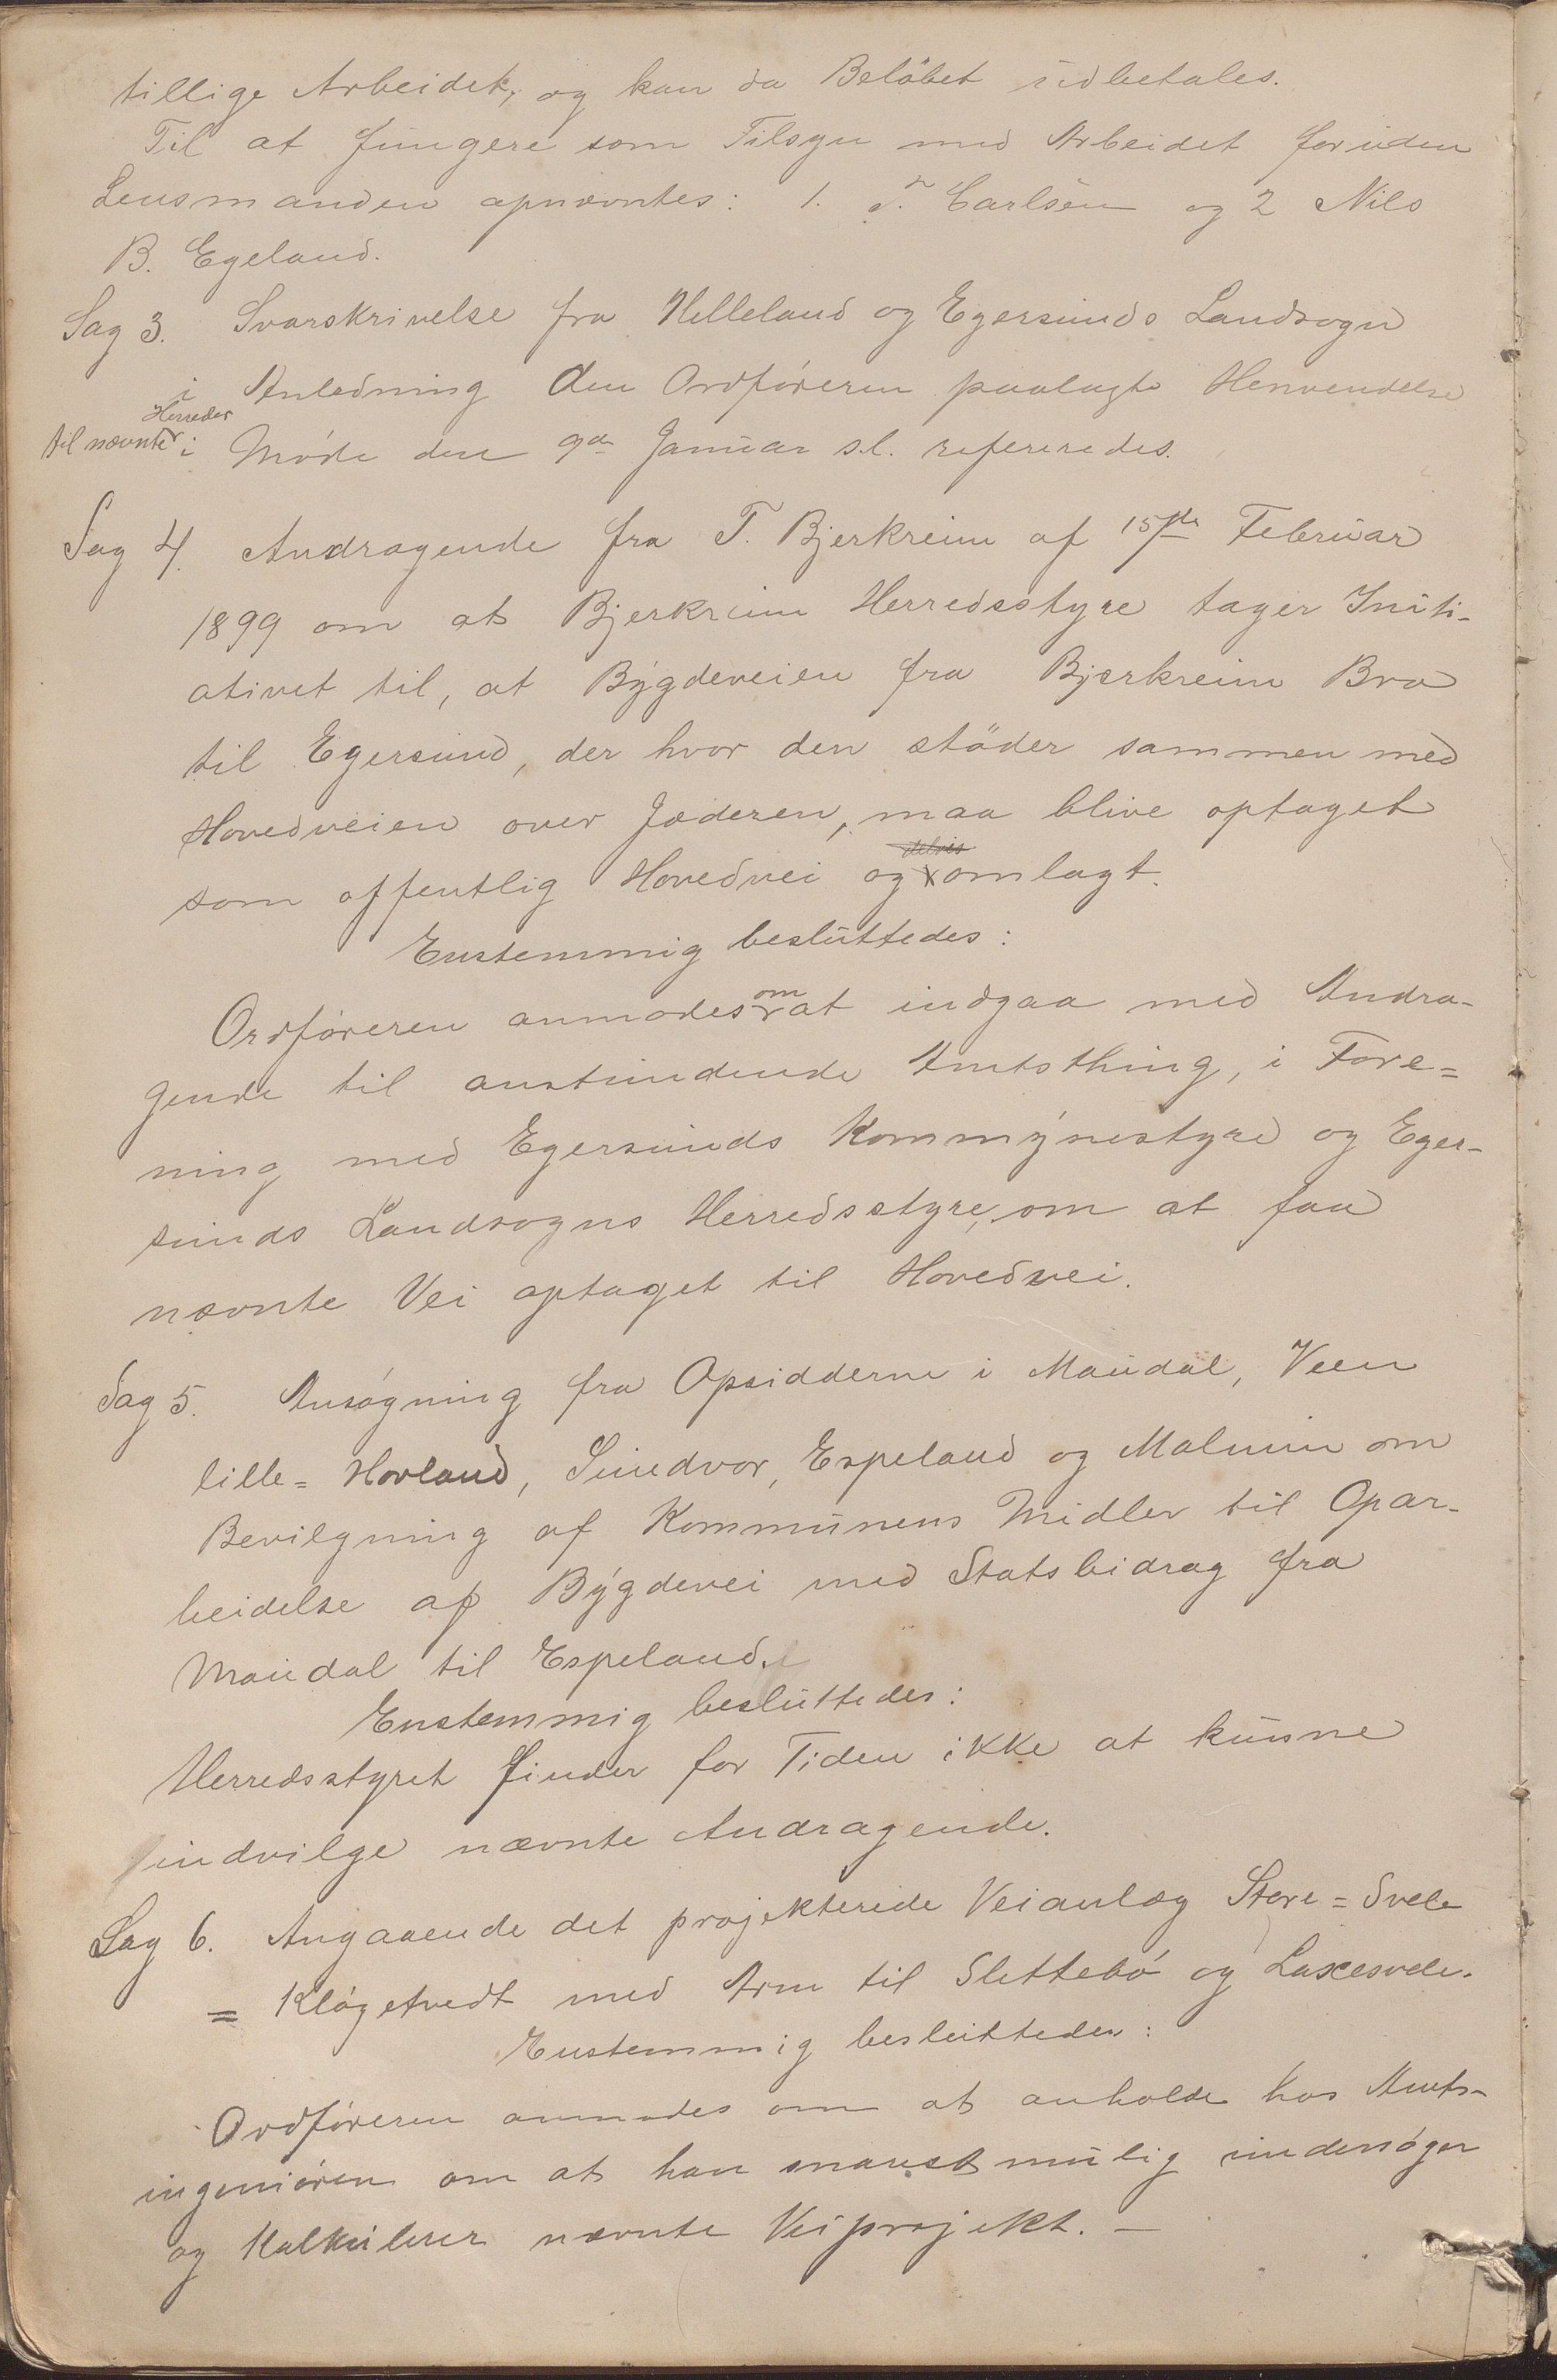 tillige Arbeidet, og kan da Belöbet udbetales.
Til at fungere som Tilsyn med Arbeidet foruden
Lensmanden opnævntes: 1. T. Carlsen og 2 Nils
B. Egeland.
Sag 3. Svarskrivelse fra Helleland og Egersunds Landsogn
i Anledning den Ordföreren paalagte Henvendelse
til nævnte Herreder i Möde den 9de Januar s.l. refereredes.
Sag 4. Andragende fra T. Bjerkreim af 15de Februar
1899 om at Bjerkreim Herredsstyre tager Initi-
ativet til, at Bygdeveien fra Bjerkreim Bro
til Egersund, der hvor den stöder sammen med
Hovedveien over Jæderen, maa blive optaget
som offentlig Hovedvei og delvis omlagt.
Enstemmig besluttedes:
Ordföreren anmodes om at indgaa med Andra-
gende til anstundende Amtsthing, i Fore=
ning med Egersunds Kommynestyre og Eger-
sunds Landsogns Herredsstyre, om at faa
nævnte Vei optaget til Hovedvei.
Sag 5. Ansögning fra Opsidderne i Maudal, Veen
lille= Hovland, Sundvor, Espeland og Malmin om
Bevilgning af Kommunens Midler til Opar-
beidelse af Bygdevei med Statsbidrag fra
Maudal til Espeland.
Enstemmig besluttedes:
Herredsstyret finder for Tiden ikke at kunne
indvilge nævnte Andragende.
Sag 6. Angaaende det projekterede Veianlæg Store=Svele
= Klögetvedt med Arm til Slettebö og Laxesvele.
Enstemmig besluttedes:
Ordföreren anmodes om at anholde hos Amts-
ingeniören om at han snarest mulig undersöger
og kalkulerer nævnte Veiprojekt. —